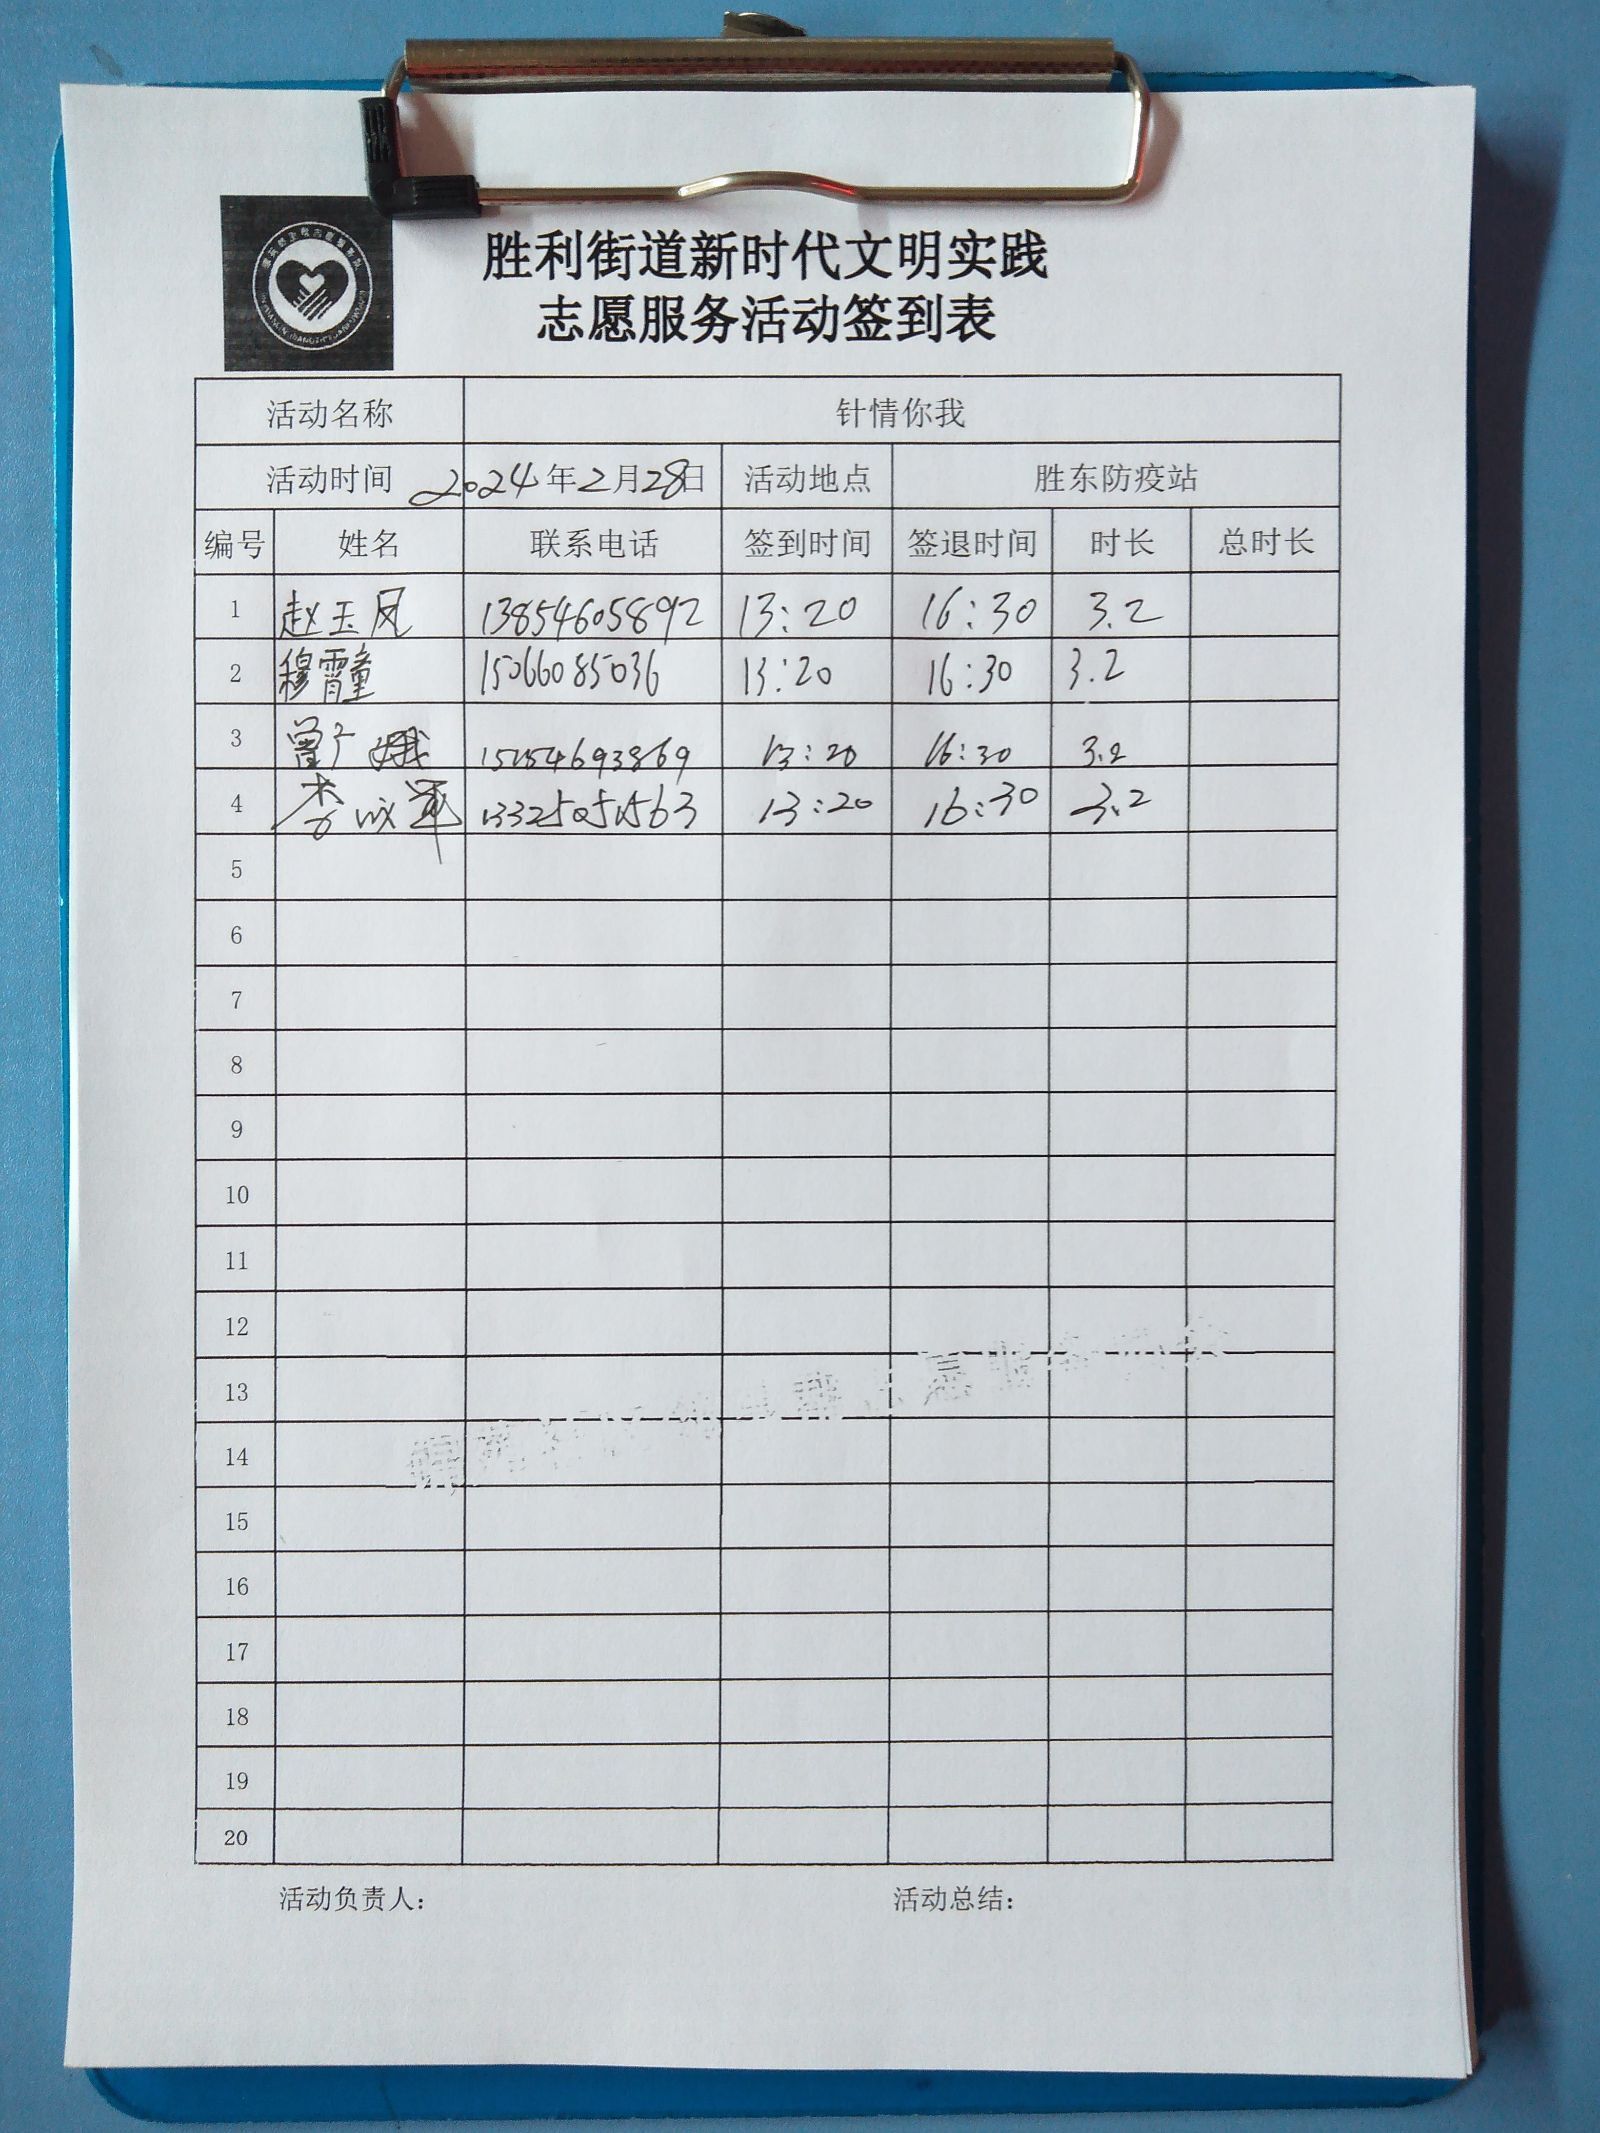 胜利街道新时代文明实践
志愿服务活动签到表
活动名称 针情你我
活动时间 2024年2月28日 活动地点 胜东防疫站
编号 姓名 联系电话 签到时间 签退时间 时长 总时长
1 赵玉凤 13854605892 13:20 16:30 3.2
2 穆霄童 15066085036 13:20 16:30 3.2
3 曾广娥 15154693869 13:20 16:30 3.2
4 李 13325051563 13:20 16:30 3.2
5
6
7
8
9
10
11
12
13
14
15
16
17
18
19
20
活动负责人: 活动总结: